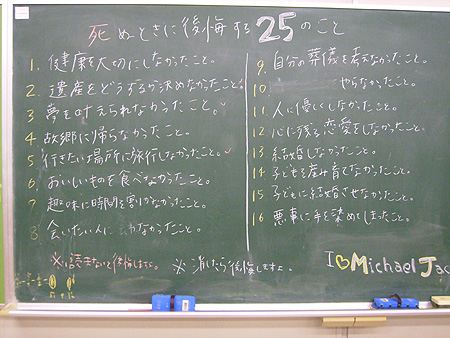 死ぬときに後悔する25のこと
1. 健康を大切にしなかったこと。
2. 遺産をどうするか決めなかったこと。
3 夢を叶えられなかったこと。
4. 故郷に帰らなかったこと。
5 行きたい場所に旅行しなかったこと。
6. おいしいものを食べなかったこと。
7 趣味に時間を割かなかったこと。
8 会いたい人に なかったこと。
※ 読まないと後悔しますよ。
9. 自分の葬儀を考えなかったこと。
10 やらなかったこと。
11 人に優しくしなかったこと。
12 心に残る恋愛をしなかったこと。
13 結婚しなかったこと。
14 子どもを産み育てなかったこと。
15 子どもに結婚させなかったこと。
16 悪事に手を染めてしまったこと。
※ 消したら後悔しますよ。
I ♡ Michael Jac